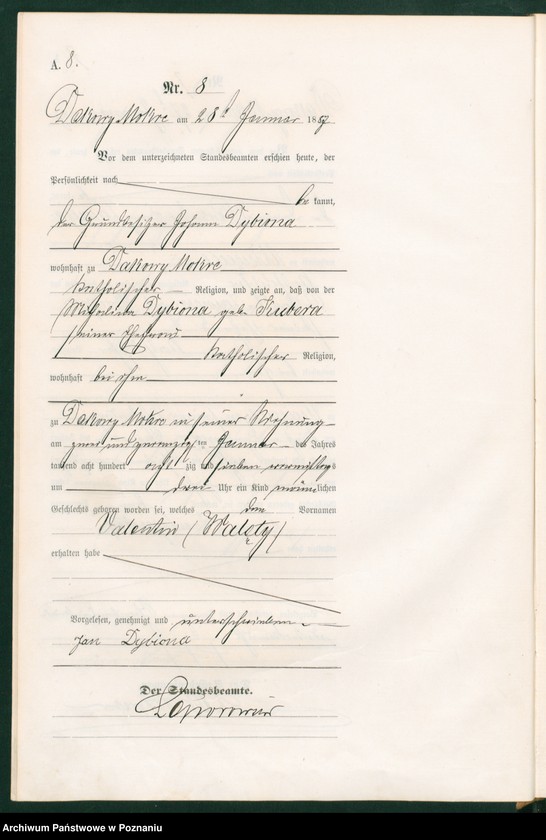 A. 8.
Nr. 8
Dakowy Mokre am 28t Januar 1887
Vor dem unterzeichneten Standesbeamten erschien heute, der
Persönlichkeit nach
be kannt,
der Grundbesitzer Johann Dybiona
wohnhaft zu Dakowy Mokre
katholischer Religion, und zeigte an, daß von der
Dybiona geb. Kubera
seiner Ehefrau
katholischer Religion,
wohnhaft bei ihm
zu Dakowy Mokre in seiner Wohnung
am zwei und zwanzig ten Januar des Jahres
tausend acht hundert acht zig und sieben vormittags
um drei Uhr ein Kind männlichen
Geschlechts geboren worden sei, welches den Vornamen
Valentin (Walęty)
erhalten habe
Vorgelesen, genehmigt und unterschrieben
Jan Dybiona
Der Standesbeamte.
Archiwum Państwowe w Poznaniu